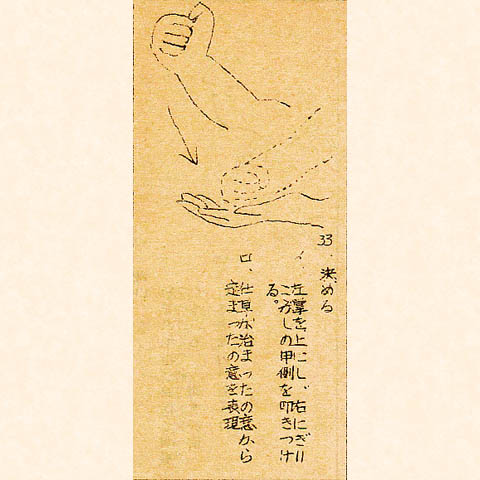 33、決める
イ、左掌を上にし、右にぎり
こぶしの甲側を叩きつけ
る。
ロ、仕草が治まったの意から
定まったの意を表現